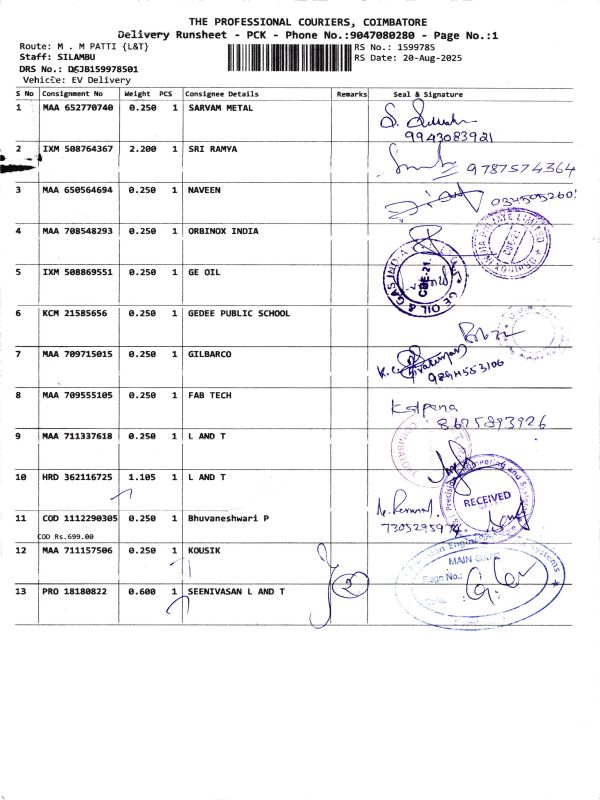 THE PROFESSIONAL COURIERS, COIMBATORE
Delivery Runsheet - PCK - Phone No.:9047080280 - Page No.:1
Route: M . M PATTI {L&T}
RS No.: 1599785
Staff: SILAMBU
RS Date: 20-Aug-2025
DRS No.: DSJB159978501
Vehicle: EV Delivery
S No Consignment No Weight PCS Consignee Details Remarks Seal & Signature
1 MAA 652770740 0.250 1 SARVAM METAL
9943083921
2 IXM 508764367 2.200 1 SRI RAMYA
9787574364
3 MAA 650564694 0.250 1 NAVEEN
4 MAA 708548293 0.250 1 ORBINOX INDIA
5 IXM 508869551 0.250 1 GE OIL
GE OIL & GAS INDIA
CBE-21
6 KCM 21585656 0.250 1 GEDEE PUBLIC SCHOOL
7 MAA 709715015 0.250 1 GILBARCO
9894553106
8 MAA 709555105 0.250 1 FAB TECH
Kalpana
8625893926
9 MAA 711337618 0.250 1 L AND T
10 HRD 362116725 1.105 1 L AND T
RECEIVED
11 COD 1112290305 0.250 1 Bhuvaneshwari P
COD Rs.699.00
12 MAA 711157506 0.250 1 KOUSIK
MAIN GATE
13 PRO 18180822 0.600 1 SEENIVASAN L AND T
2